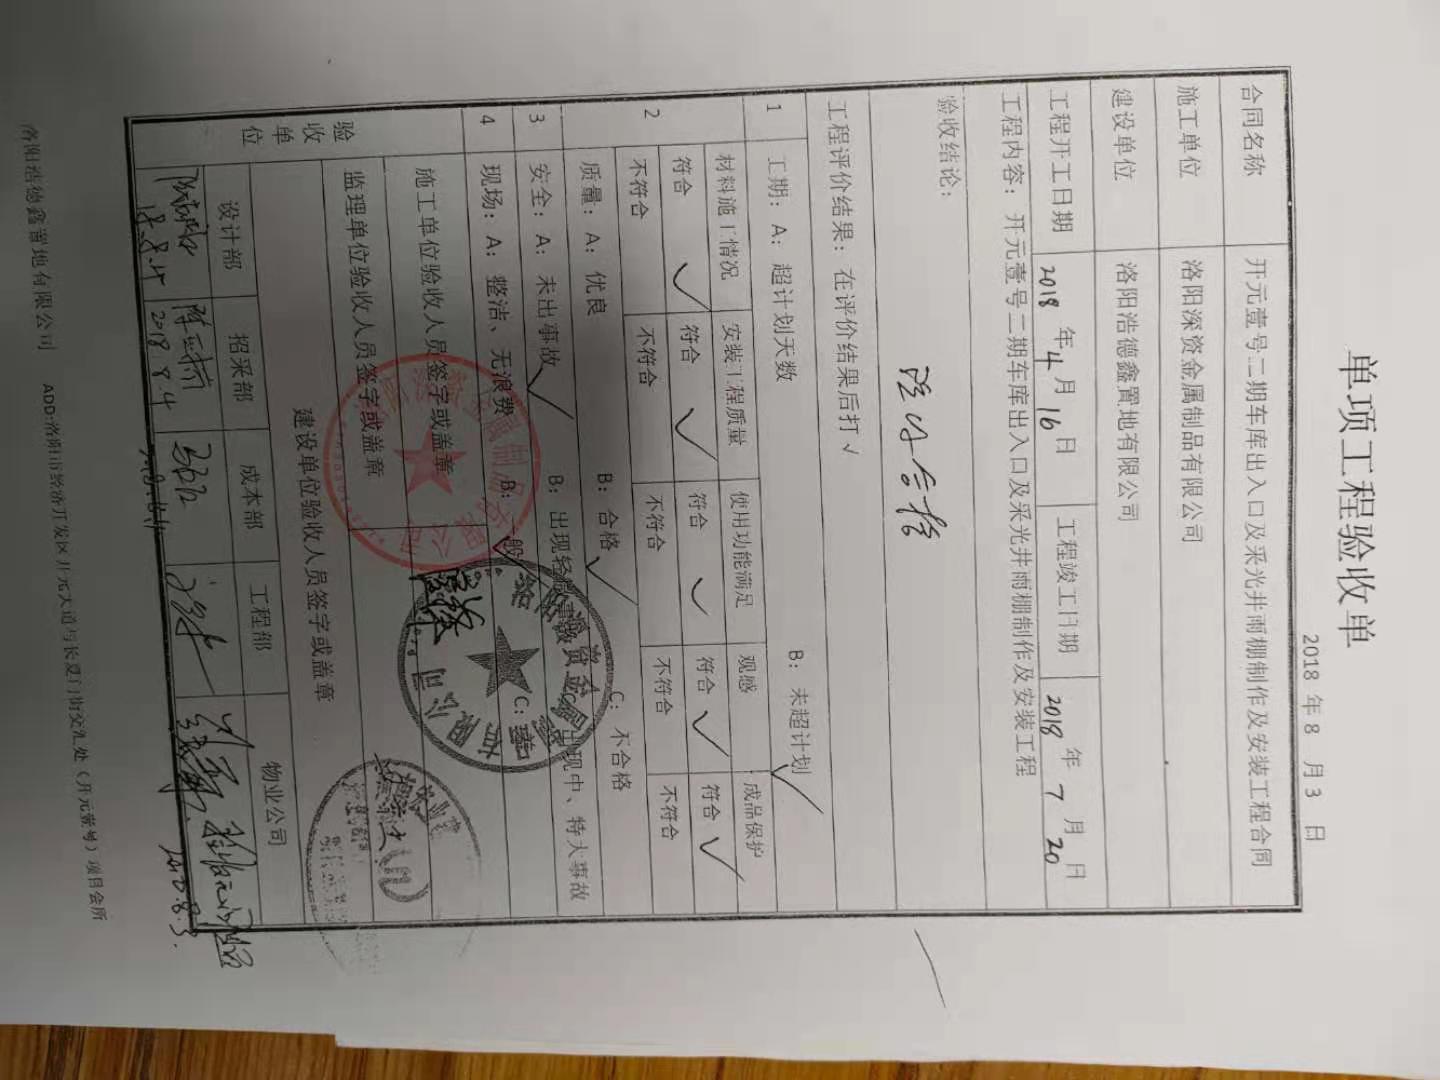 单项工程验收单
2018 年 8 月 3 日
合同名称 开元壹号二期车库出入口及采光井雨棚制作及安装工程合同
施工单位 洛阳深资金属制品有限公司
建设单位 洛阳浩德鑫置地有限公司
工程开工日期 2018 年 4 月 16 日 工程竣工日期 2018 年 7 月 20 日
工程内容：开元壹号二期车库出入口及采光井雨棚制作及安装工程
验收结论：
验收合格
工程评价结果：在评价结果后打√
1 工期：A：超计划天数 B：未超计划 √
2 材料施工情况 安装工程质量 使用功能满足 观感 成品保护
符合 √ 符合 √ 符合 √ 符合 √ 符合 √
不符合 不符合 不符合 不符合 不符合
质量：A：优良 B：合格 √ C：不合格
3 安全：A：未出事故 √ B：出现轻 C：出现中、特大事故
4 现场：A：整洁、无浪费 B：一般 √ C：
验收单位
施工单位验收人员签字或盖章
监理单位验收人员签字或盖章
建设单位验收人员签字或盖章
设计部 招采部 成本部 工程部 物业公司
18.8.4 2018 8 4 2018.8.3.
洛阳浩德鑫置地有限公司 ADD:洛阳市经济开发区开元大道与长夏门街交汇处（开元壹号）项目会所